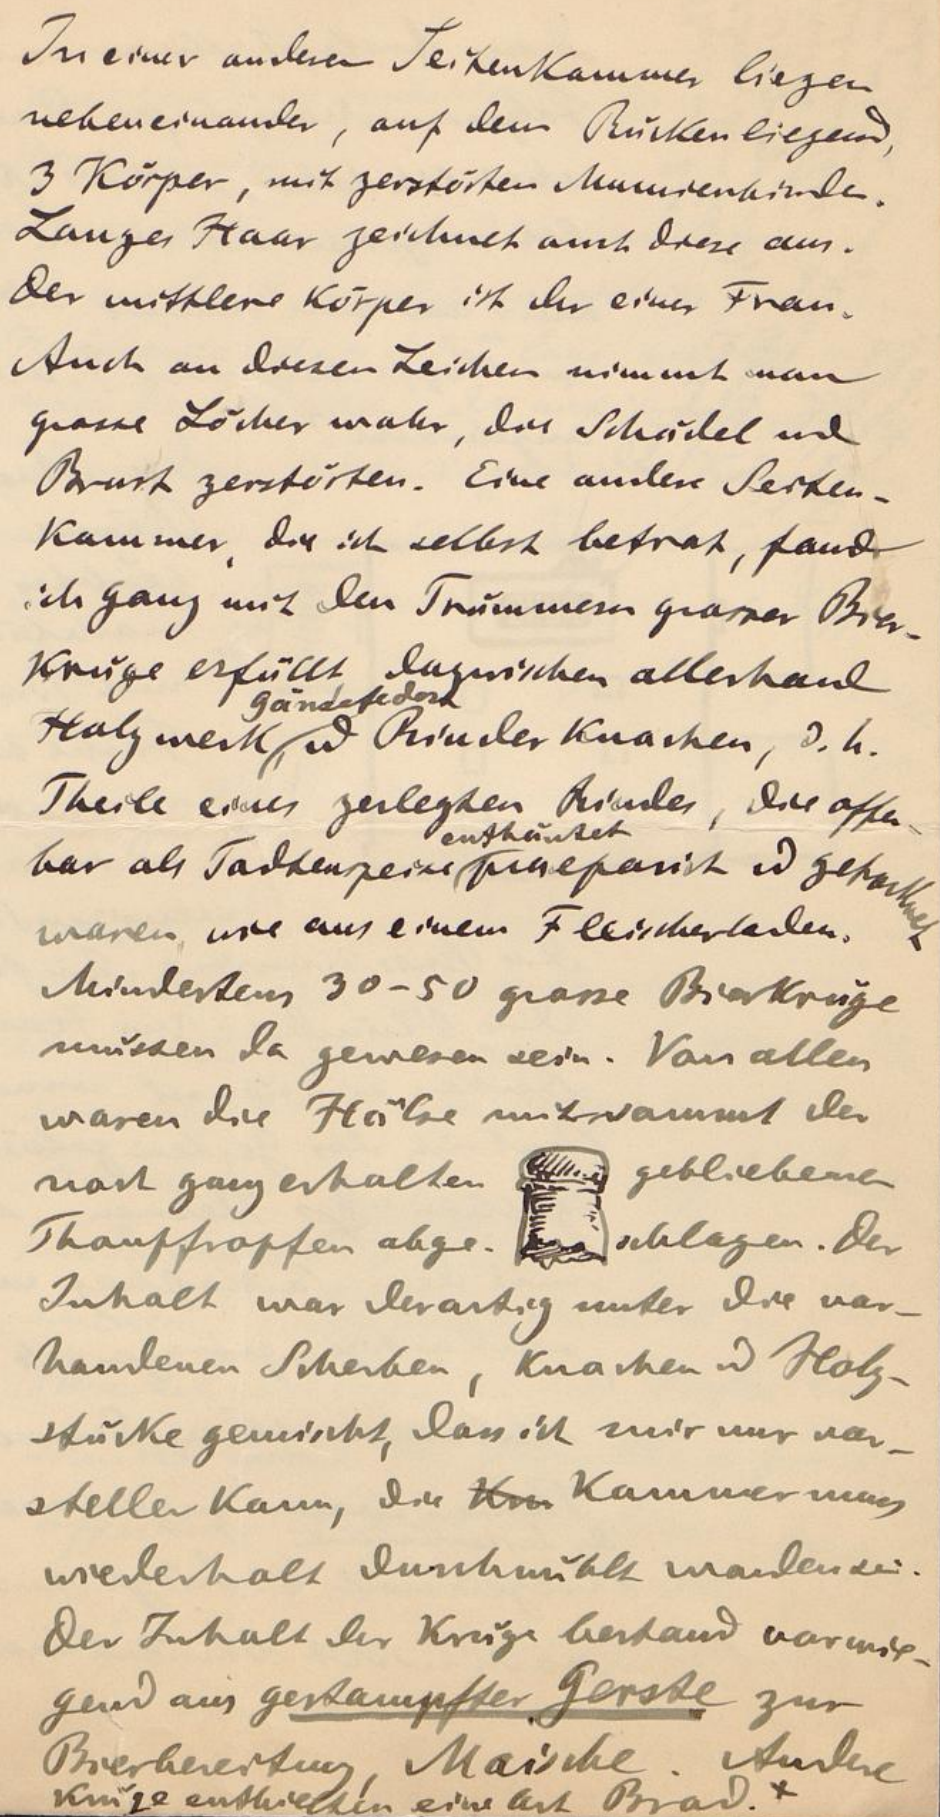 In einer anderen Seitenkammer liegen
nebeneinander, auf dem Rücken liegend,
3 Körper, mit zerstörten Mumienbinden.
Langes Haar zeichnet auch diese aus.
Der mittlere Körper ist der einer Frau.
Auch an diesen Leichen nimmt man
grosse Löcher wahr, die Schädel und
Brust zerstörten. Eine andere Seiten-
Kammer, die ich selbst betrat, fand
ich ganz mit den Trümmern grosser Bier-
Krüge erfüllt, dazwischen allerhand
Gänsefedern
Holzwerk, u Rinder Knochen, d.h.
Theile eines zerlegten Rindes, die offen-
enthäutet
bar als Todtenspeise praeparirt u getrocknet
waren, wie aus einem Fleischerladen.
Mindestens 30-50 grosse Bierkrüge
müssen da gewesen sein. Von allen
waren die Hälse mitsammt der
noch ganz erhalten gebliebenen
Thonpfropfen abge- schlagen. Der
Inhalt war derartig unter die vor-
handenen Scherben, Knochen u Holz-
stücke gemischt, dass ich mir nur vor-
stellen kann, die Kammer muss
wiederholt durchwühlt worden sei.
Der Inhalt der Krüge bestand vorwie-
gend aus gestampfter Gerste zur
Bierbereitung, Maische. Andere
Krüge enthielten eine Art Brod. +